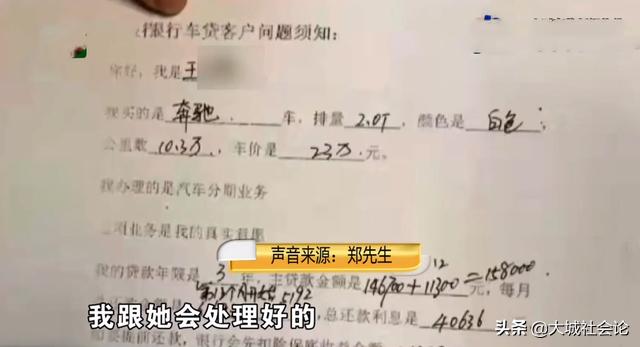 银行车贷客户问题须知：
你好，我是王
我买的是 奔驰 车，排量 2.0T，颜色是 白色；
公里数 10.3万，车价是 23万 元。
我办理的是汽车分期业务
业务是我的真实意愿
我的贷款年限是 3 年，主贷款金额是 146700+11300=158000 元，每月
12
5192
总还款利息是 40636
声音来源：郑先生
我跟她会处理好的
头条 @大城社会论